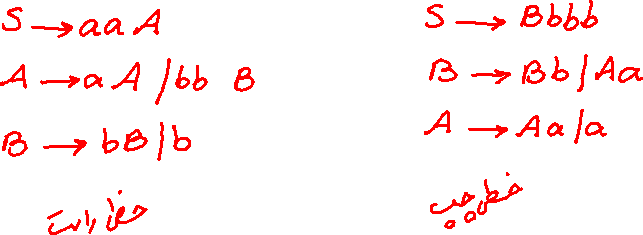 S → aaA
A → aA/bb B
B → bB/b
خطی راست
S → Bbbb
B → Bb/Aa
A → Aa/a
خطی چپ